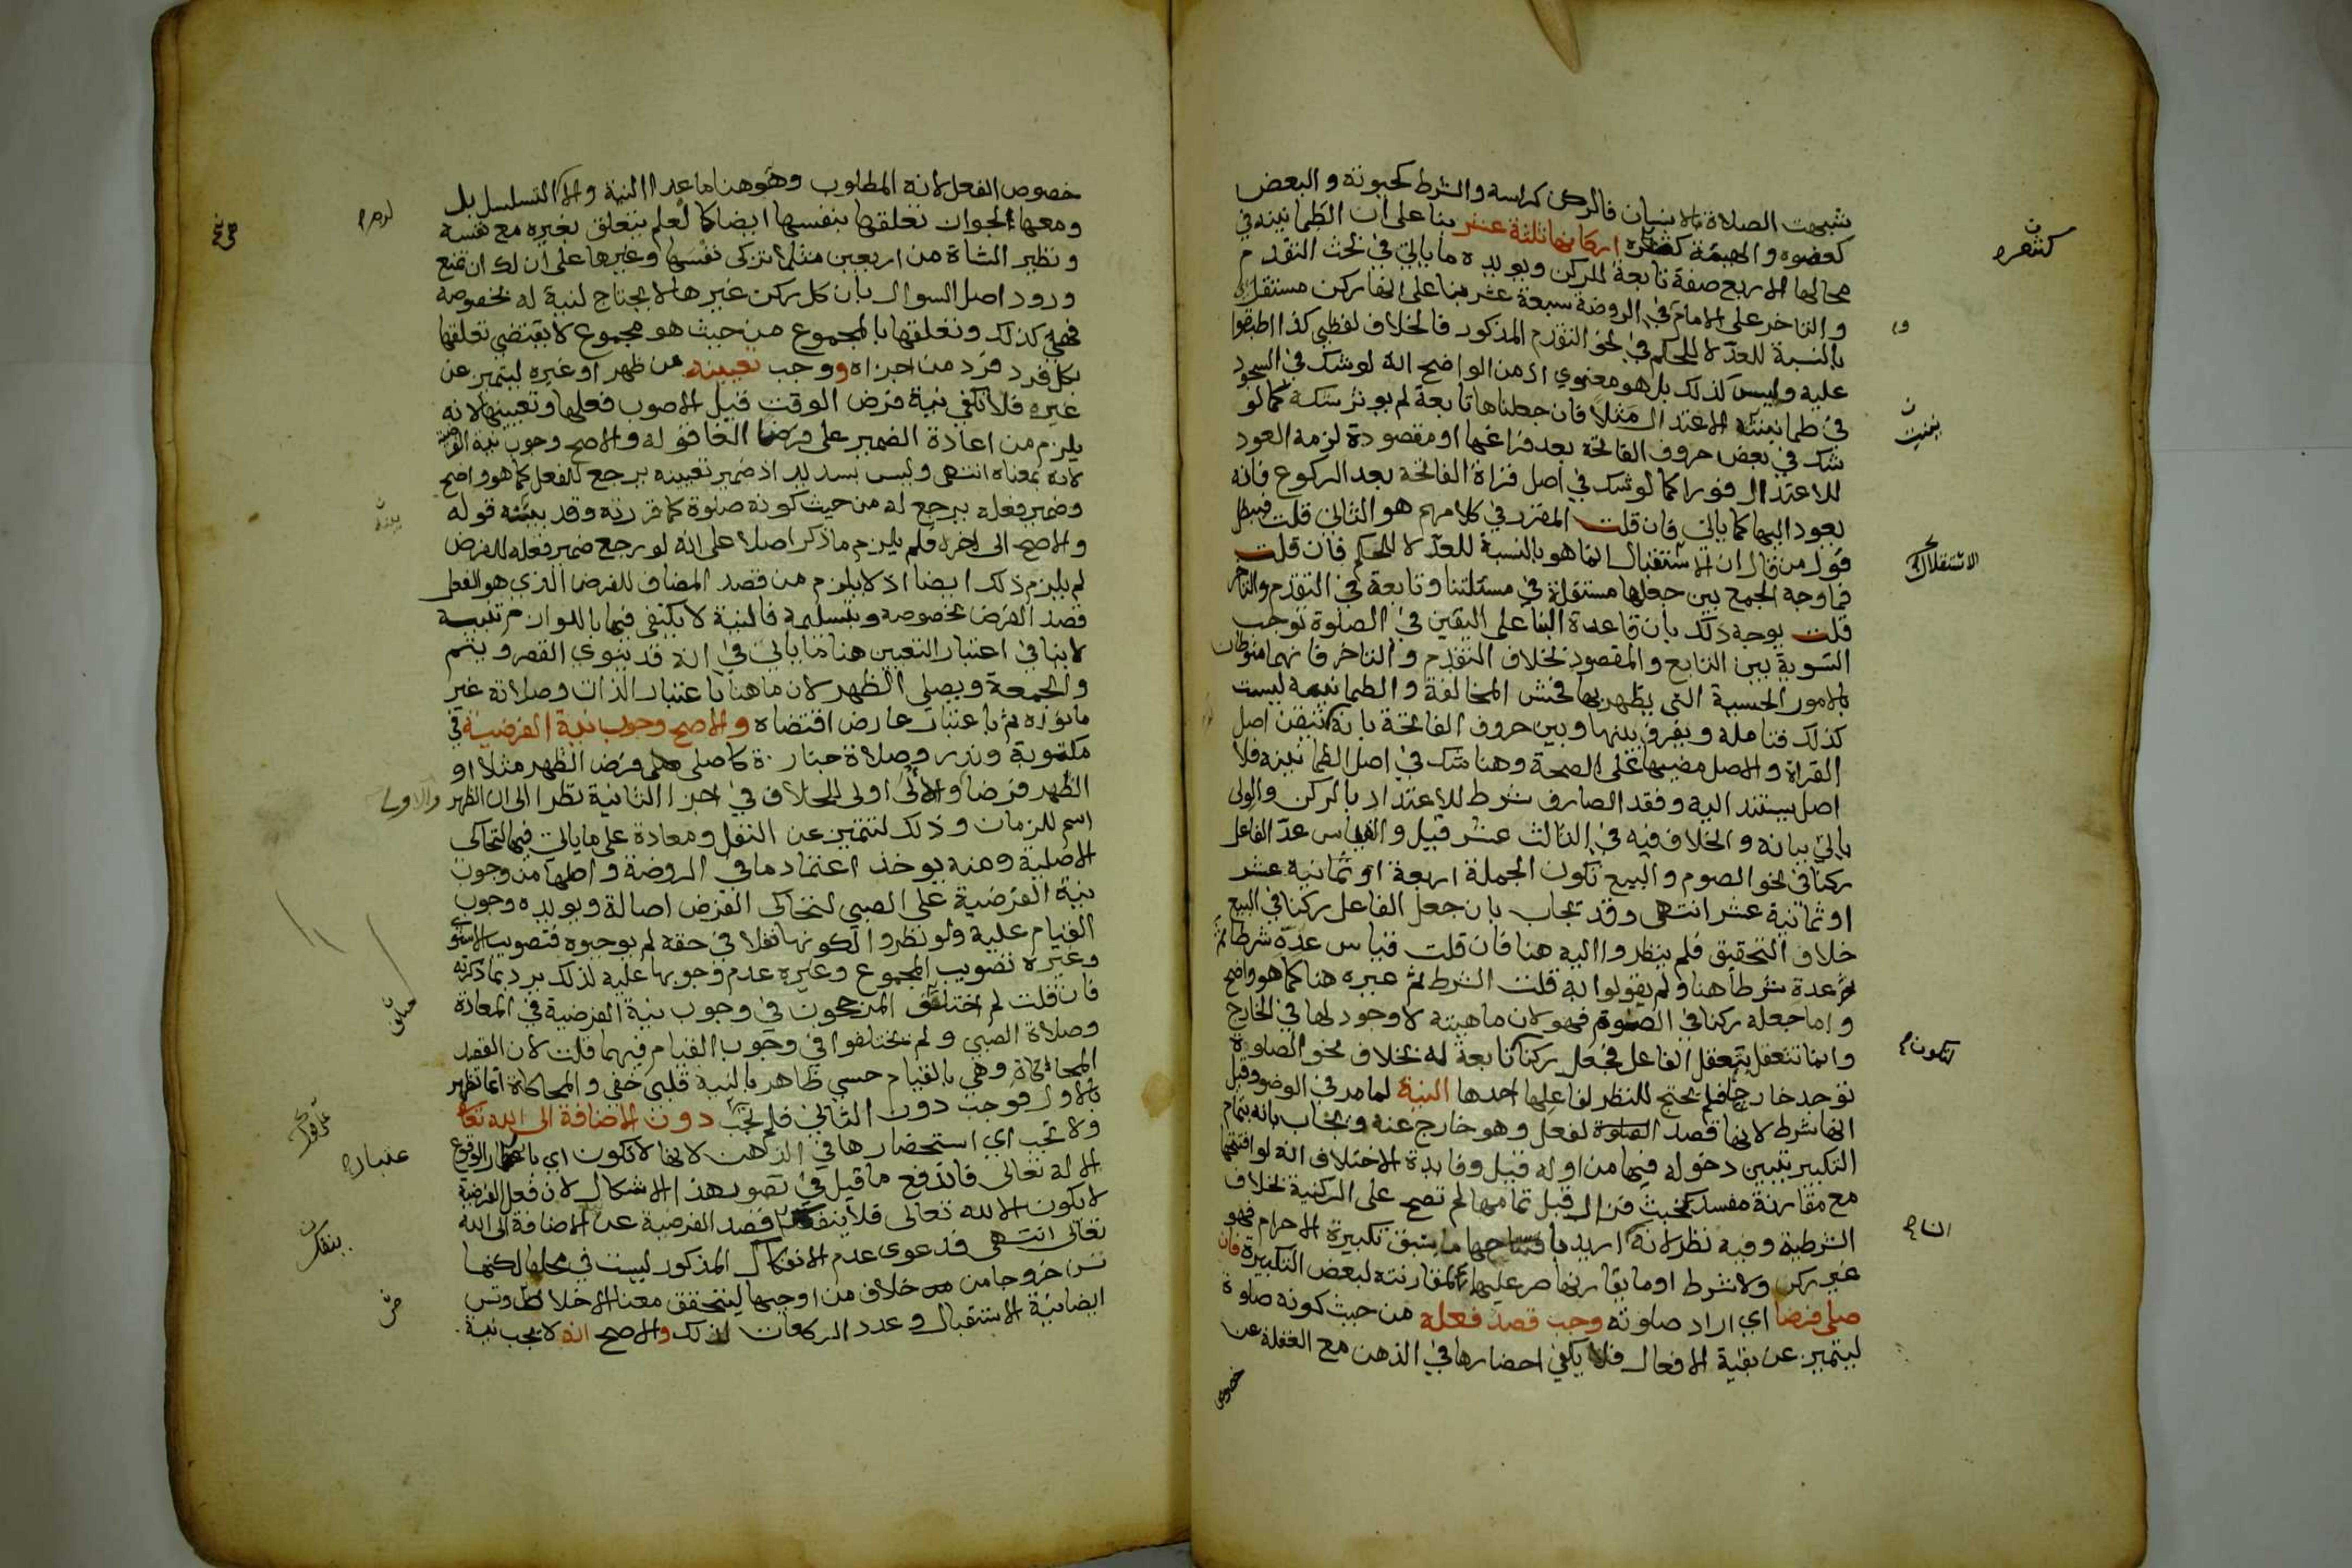 شبهت الصلاة بالانسان فالركن كراسه والشرط كحيوته والبعض
كعضوه والهيئة كشعره اركانها ثلثة عشر بنا على ان الطمانينه في
محالها الاربع صفة تابعة للركن ويويده ما ياتي في بحث التقدم
والتاخر على الامام وفي الروضة سبعة عشر بنا على انها ركن مستقل اي
بالنسبة للعد لا للحكم في نحو التقدم المذكور فالخلاف لفظي كذا اطبقوا
عليه وليس كذلك بل هو معنوي اذ من الواضح انه لو شك في السجود
في طمانينة الاعتدال مثلا فان جعلناها تابعة لم يوثر شكه كما لو
شك في بعض حروف الفاتحة بعد فراغها او مقصودة لزمه العود
للاعتدال فورا كما لو شك في اصل قراة الفاتحة بعد الركوع فانه
يعود اليها كما ياتي فان قلت المقرر في كلامهم هو الثاني قلت فيبطل
قول من قال ان الاستقلال انما هو بالنسبة للعد لا للحكم فان قلت
فما وجه الجمع بين جعلها مستقلة في مسئلتنا وتابعة في التقدم والتاخر
قلت يوجه ذلك بان قاعدة البنا على اليقين في الصلوة توجب
التسوية بين التابع والمقصود بخلاف التقدم والتاخر فانهما منوطان
بالامور الحسية التي يظهر بها فحش المخالفة والطمانينة ليست
كذلك فتامله ويفرق بينها وبين حروف الفاتحة بانه ثم تيقن اصل
القراة والاصل مضيها على الصحة وهنا شك في اصل الطمانينه فلا
اصل يستند اليه وفقد الصارف شرط للاعتداد بالركن والولى
ياتي بيانه والخلاف فيه في الثالث عشر قيل والقياس عد الفاعل
ركنا في نحو الصوم والبيع تكون الجملة اربعة او ثمانية عشر
او ثمانية عشر انتهى وقد يجاب بان جعل الفاعل ركنا في البيع
خلاف التحقيق فلم ينظروا اليه هنا فان قلت قياس عده شرطا ثم
عده شرطا هنا ولم يقولوا به قلت الشرط ثم عبره هنا كما هو واضح
واما جعله ركنا في الصوم فهو لان ماهيته لا وجود لها في الخارج
وانما تتعقل بتعقل الفاعل فجعل ركنا تابعة له بخلاف نحو الصلوة
توجد خارجا فلم يحتج للنظر لفاعلها احدها النية لما مر في الوضو وقيل
انها شرط لانها قصد لفعل وهو خارج عنه ويجاب بانه بتمام
التكبير تبين دخوله فيها من اوله قيل وفايدة الاختلاف انه لو افتتحها
مع مقارنة مفسد كخبث فزال قبل تمامها لم تصح على الركنية بخلاف
الشرطية وفيه نظر لانه ان اريد بافتتاحها ما يسبق تكبيرة الاحرام فهو
غير ركن ولا شرط او ما يقارنها ضر عليهما لمقارنته لبعض التكبيرة فان
صلى فرضا اي اراد صلوته وجب قصد فعله من حيث كونه صلوة
ليتميز عن بقية الافعال فلا يكفي احضارها في الذهن مع الغفلة عن
خصوص
كشعره
الاستقلال
لتكون
خصوص الفعل لانه المطلوب وهو هنا ما عدا النية والا التسلسل بل
ومعها لجواز تعلقها بنفسها ايضا كالعلم يتعلق بغيره مع نفسه
ونظير الشاة من اربعين مثلا تزكى نفسها وغيرها على ان لك ان تمنع
ورود اصل السوال بان كل ركن غيرها لا يحتاج لنية له بخصوصه
فهي كذلك وتعلقها بالمجموع من حيث هو مجموع لا يقتضي تعلقها
بكل فرد فرد من اجزاه ووجب تعيينه من ظهر او غيره ليتميز عن
غيره فلا تكفي نية فرض الوقت قيل الاصوب فعلها وتعيينها لانه
يلزم من اعادة الضمير على فرضا الغا قوله والاصح وجوب نية الفرضية
لانه بمعناه انتهى وليس بسديد اذ ضمير تعيينه يرجع للفعل كما هو واضح
وضمير فعله يرجع له من حيث كونه صلوة كما قررته وقد بينه قوله
والاصح الى اخره فلم يلزم ما ذكر اصلا على انه لو رجع ضمير فعله للفرض
لم يلزم ذلك ايضا اذ لا يلزم من قصد المضاف للفرض الذي هو الفعل
قصد الفرض بخصوصه وبتسليمه فالنية لا يكتفى فيها باللوازم تنبيه
لا ينافي اعتبار التعيين هنا ما ياتي في انه قد ينوي القصر ويتم
والجمعة ويصلى الظهر لان ما هنا باعتبار الذات وصلاته غير
ما نواه ثم باعتبار عارض اقتضاه والاصح وجوب نية الفرضية في
مكتوبة ونذر وصلاة جنازة كاصلي فرض الظهر مثلا او
الظهر فرضا والاولى اولى للخلاف في اجزا الثانية نظرا الى ان الظهر
اسم للزمان وذلك لتتميز عن النفل ومعادة على ما ياتي فيها لتحاكى
الاصلية ومنه يوخذ اعتماد ما في الروضة واصلها من وجوب
نية الفرضية على الصبي لتحاكى الفرض اصالة ويويده وجوب
القيام عليه ولو نظروا لكونها نفلا في حقه لم يوجبوه فتصويب الاسنوي
وغيره تصويب المجموع وغيره عدم وجوبها عليه لذلك يرد بما ذكرته
فان قلت لم اختلف المرجحون في وجوب نية الفرضية في المعادة
وصلاة الصبي ولم يختلفوا في وجوب القيام فيهما قلت لان القصد
المحاكاة وهي بالقيام حسي ظاهر بالنية قلبي خفي والمحاكاة انما تظهر
بالاول فوجب دون الثاني فلم تجب دون الاضافة الى الله تعالى
ولا تجب اي استحضارها في الذهن لانها لا تكون اي باعتبار الوقوع
الا له تعالى فاندفع ما قيل في تصور هذا الاشكال لان فعل الفرضية
لا يكون الا لله تعالى فلا ينفك قصد الفرضية عن الاضافة الى الله
تعالى انتهى فدعوى عدم الانفكاك المذكور ليست في محلها لكنها
تسن خروجا من خلاف من اوجبها ليتحقق معنا الاخلاص وتسن
ايضا نية الاستقبال وعدد الركعات لذلك والاصح انه لا يجب نية